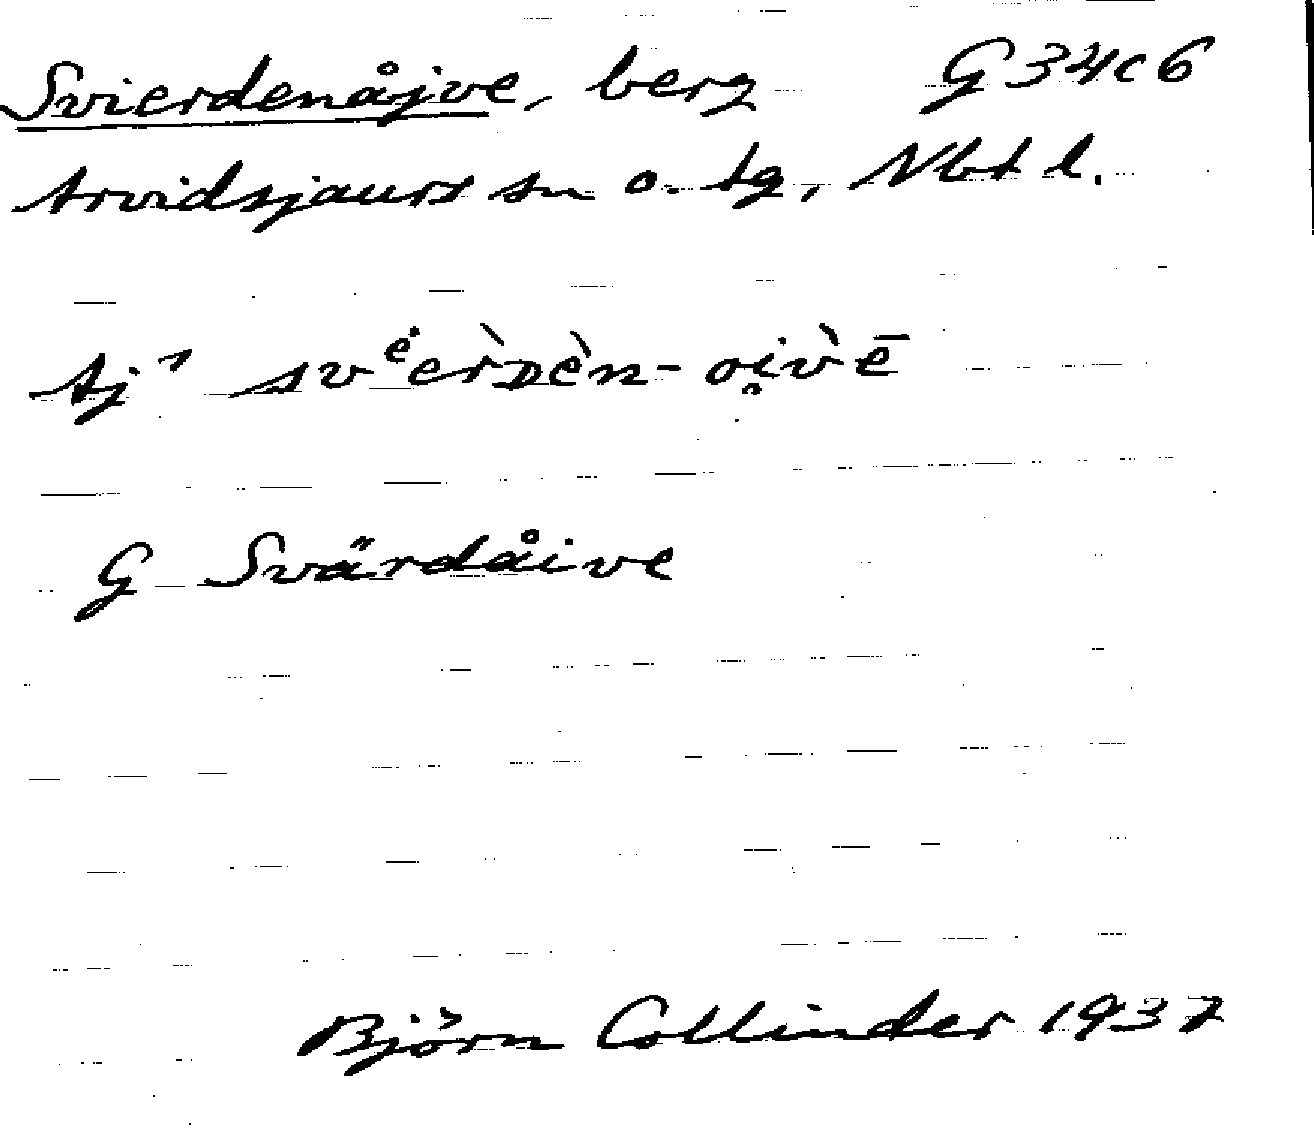 Svierdenåjve, berg G 34c6
Arvidsjaurs sn o. tg, Nbt l.
Aj¹ svėerὸᴅèn-oi̭v̀ē
G Svärdåive
Björn Collinder 1937